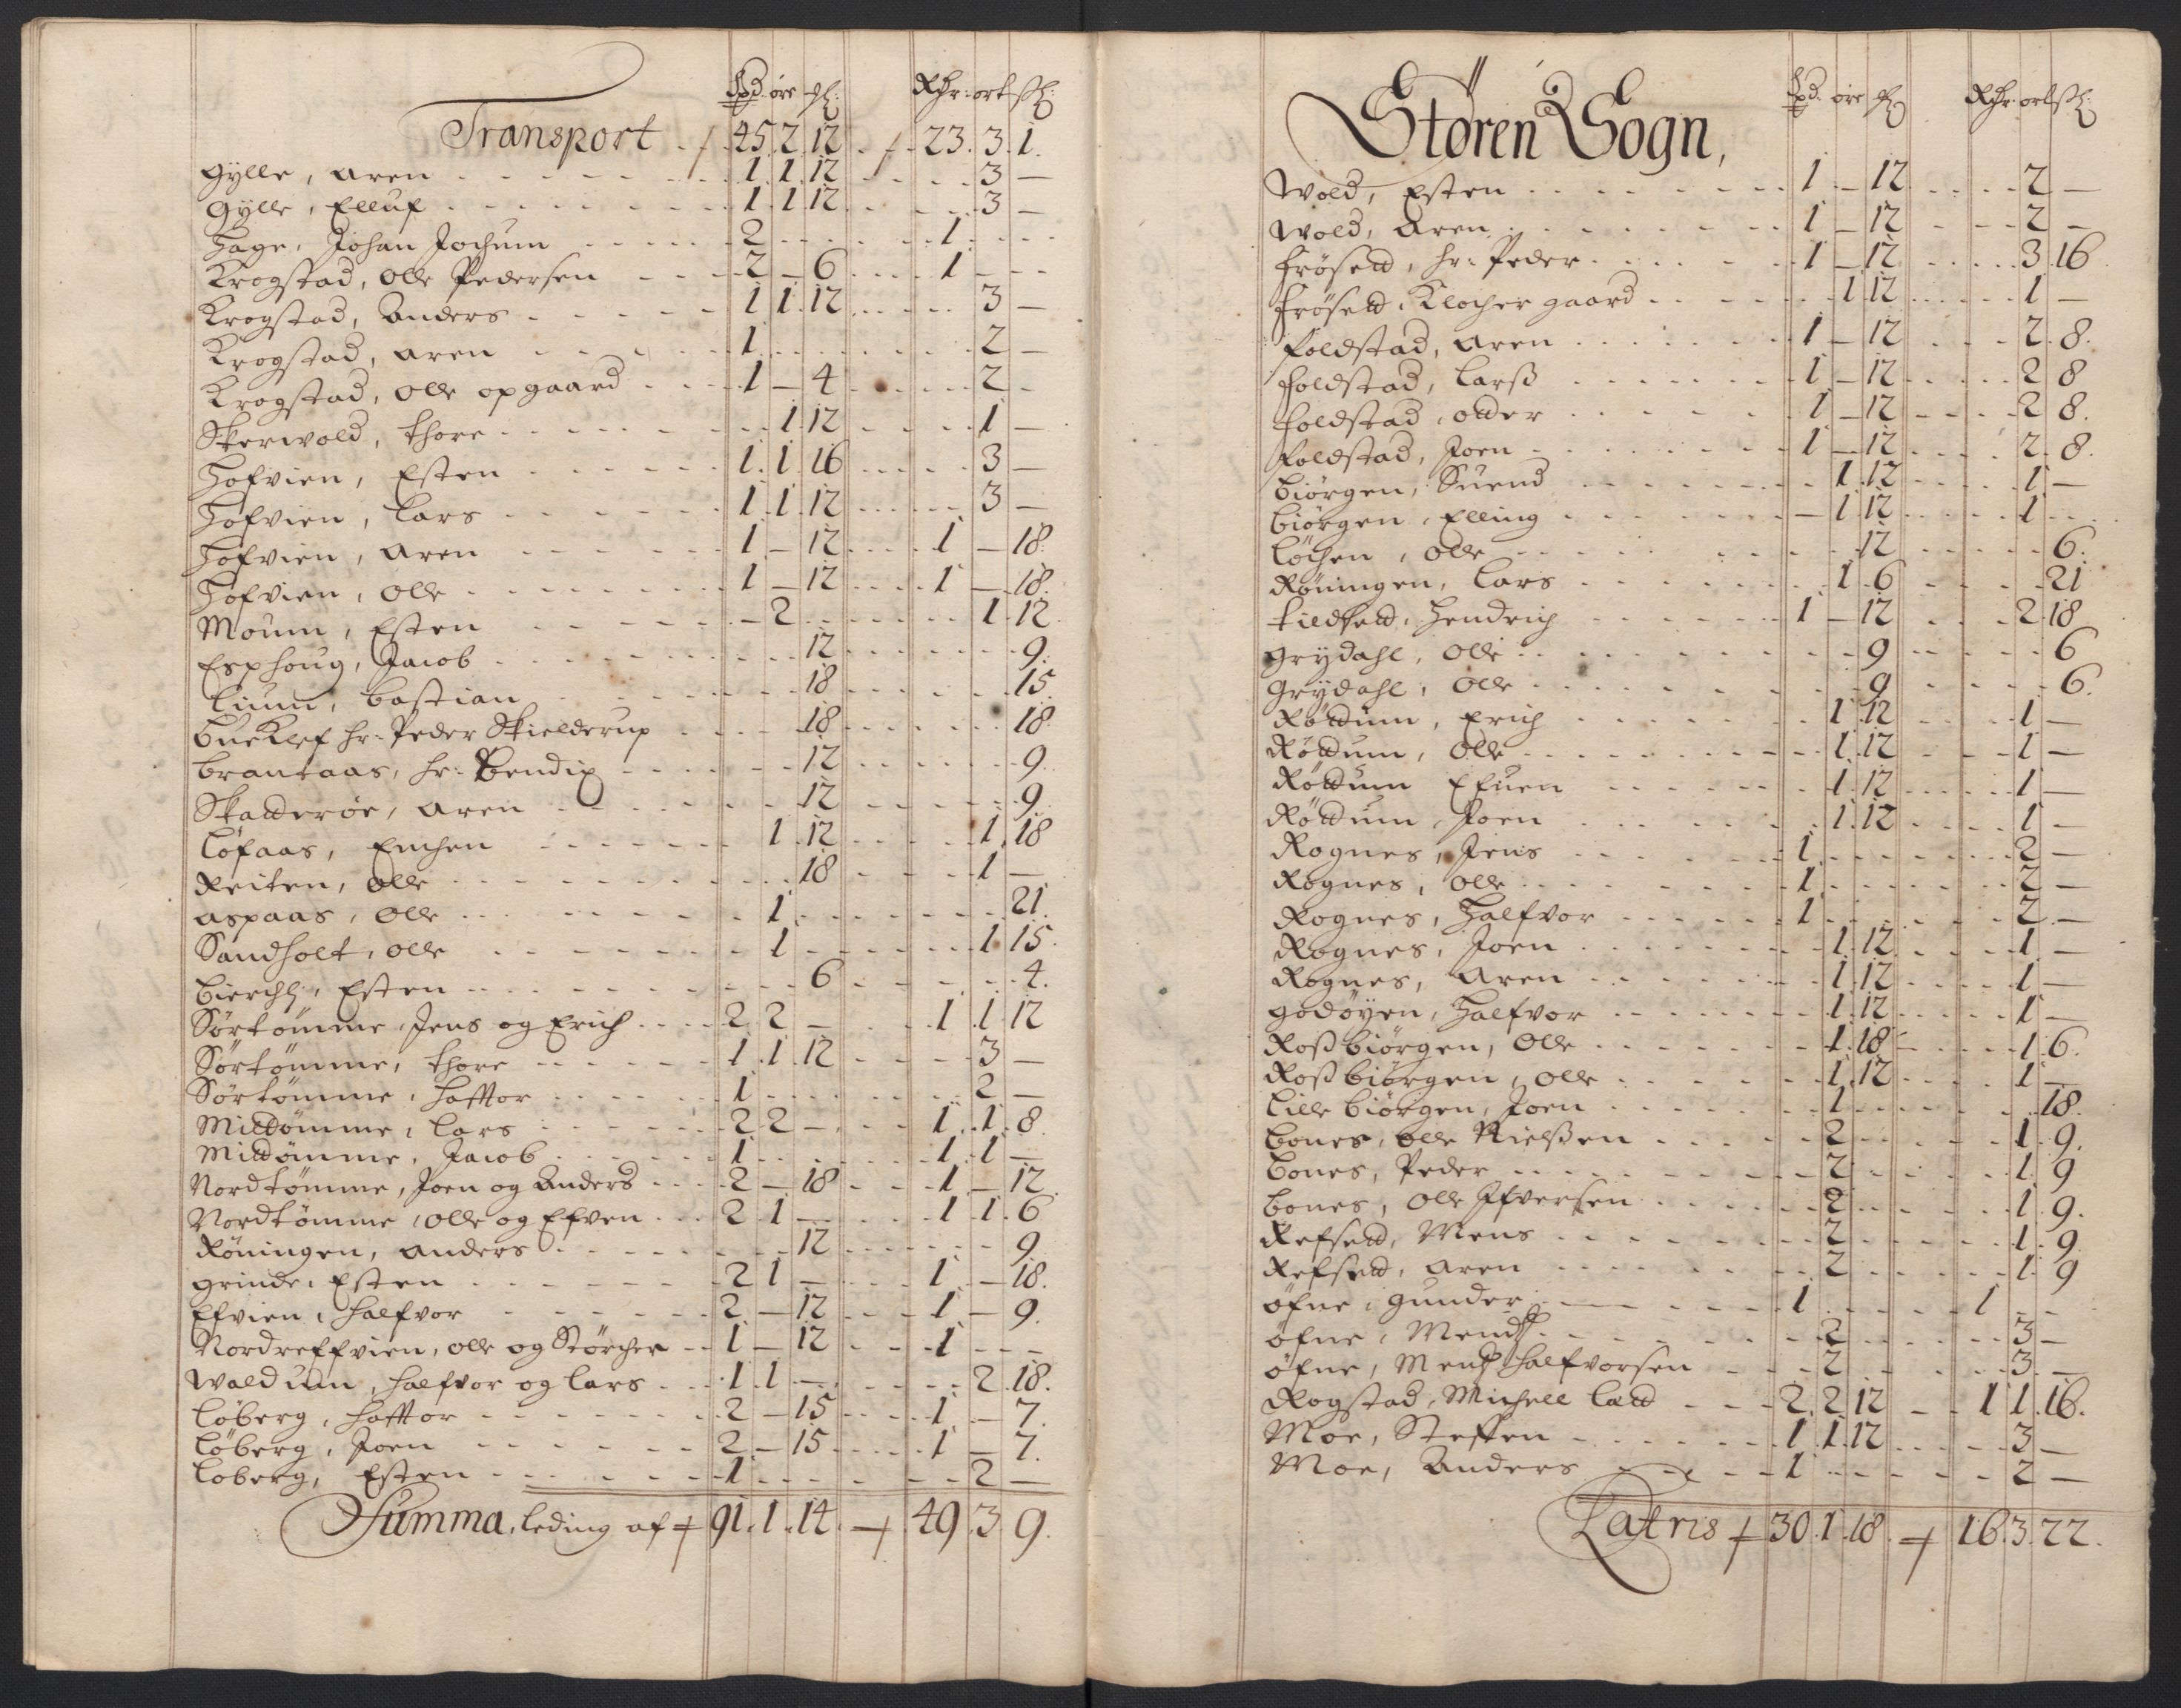 Spd. øre ₰: Rdr: ort ß:
Transport 45 2 12 23 3 1
Gylle, Aren 1 1 12 3 —
Gylle, Elluf 1 1 12 3 —
Hage, Johan Jochum 2 1
Krogstad, Olle Pedersen 2 — 6 1 —
Krogstad, Anders 1 1 12 3 —
Krogstad, Aren 1 2 —
Krogstad, Olle opgaard 1 — 4 2 —
Skerwold, Thore 1 12 1 —
Hofvien, Esten 1 1 16 3 —
Hofvien, Lars 1 1 12 3 —
Hofvien, Aren 1 — 12 1 — 18
Hofvien, Olle 1 — 12 1 — 18
Moum, Esten — 2 1 12
Esphoug, Jacob 12 9
Lium, Bastian 18 15
Bueklef hr: Peder Skielderup 18 18
Brantaas, hr: Bendix 12 9
Skatterøe, Aren 12 9
Løfaas, Emhen 1 12 1 18
Reiten, Olle 18 1 —
Aspaas, Olle 1 21
Sandholt, Olle 1 1 15
Bierchli, Esten 6 4
Sørtømme, Jens og Erich 2 2 — 1 1 12
Sørtømme, Thore 1 1 12 3 —
Sørtømme, Hafftor 1 2 —
Mittømme, Lars 2 2 — 1 1 8
Mittømme, Jacob 1 1 1 —
Nordtømme, Joen og Anders 2 — 18 1 — 12
Nordtømme, Olle og Efven 2 1 — 1 1 6
Røningen, Anders 12 9
Grinde, Esten 2 1 — 1 — 18
Efvien, Halfvor 2 — 12 1 — 9
Nordreffvien, Olle og Størcher 1 — 12 1
Waldum, Halfvor og Lars 1 1 — 2 18
Løberg, Hafftor 2 — 15 1 — 7
Løberg, Joen 2 — 15 1 — 7
Løberg, Esten 1 2 —
Summa, leding af 91 1 14 49 3 9
Støren Sogn,
Spd. øre ₰ Rdr: ort ß:
Wold, Esten 1 — 12 2 —
Wold, Aren 1 — 12 2 —
Frøsett, hr: Peder 1 — 12 3 16
Frøsett, Klocher gaard 1 12 1 —
Foldstad, Aren 1 — 12 2 8
Foldstad, Larß 1 — 12 2 8
Foldstad, Otter 1 — 12 2 8
Foldstad, Joen 1 — 12 2 8
Biørgen, Suend 1 12 1 —
Biørgen, Elling — 1 12 1
Løchen, Olle 12 6
Røningen, Lars 1 6 21
Tildsett, Hendrich 1 — 12 2 18
Grydahl, Olle 9 6
Grydahl, Olle 9 6
Røttum, Erich 1 12 1 —
Røttum, Olle 1 12 1 —
Røttum Efuen 1 12 1 —
Røttum, Joen 1 12 1 —
Rognes, Jens 1 2 —
Rognes, Olle 1 2 —
Rognes, Halfvor 1 2 —
Rognes, Joen 1 12 1 —
Rognes, Aren 1 12 1 —
Godøyen, Halfvor 1 12 1 —
Roßbiørgen, Olle 1 18 1 6
Roßbiørgen, Olle 1 12 1 —
Lille Biørgen, Joen 1 18
Bones, Olle Nielßen 2 1 9
Bones, Peder 2 1 9
Bones, Olle Ifversen 2 1 9
Refsett, Mens 2 1 9
Refsett, Aren 2 1 9
Øfne, Gunder 1 1
Øfne, Mendtz 2 3 —
Øfne, Mentz Halfvorsen 2 3 —
Rogstad, Michell Latt 2 2 12 1 1 16
Moe, Steffen 1 1 12 3 —
Moe, Anders 1 2 —
Latris 30 1 18 16 3 22